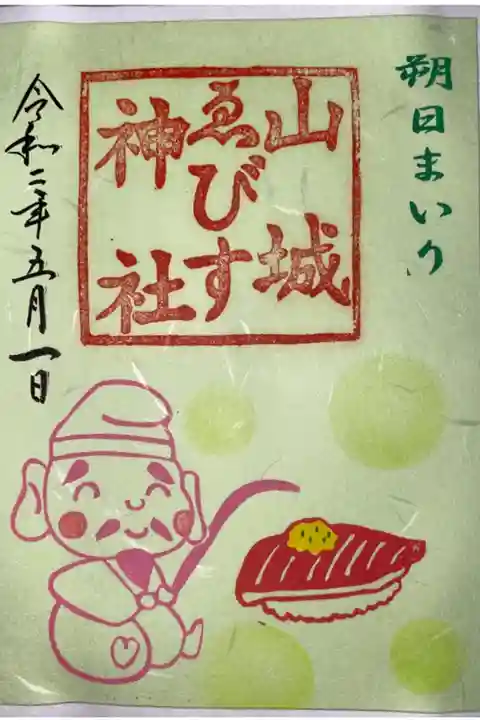 朔日まいり
山城
ゑびす
神社
令和二年五月一日